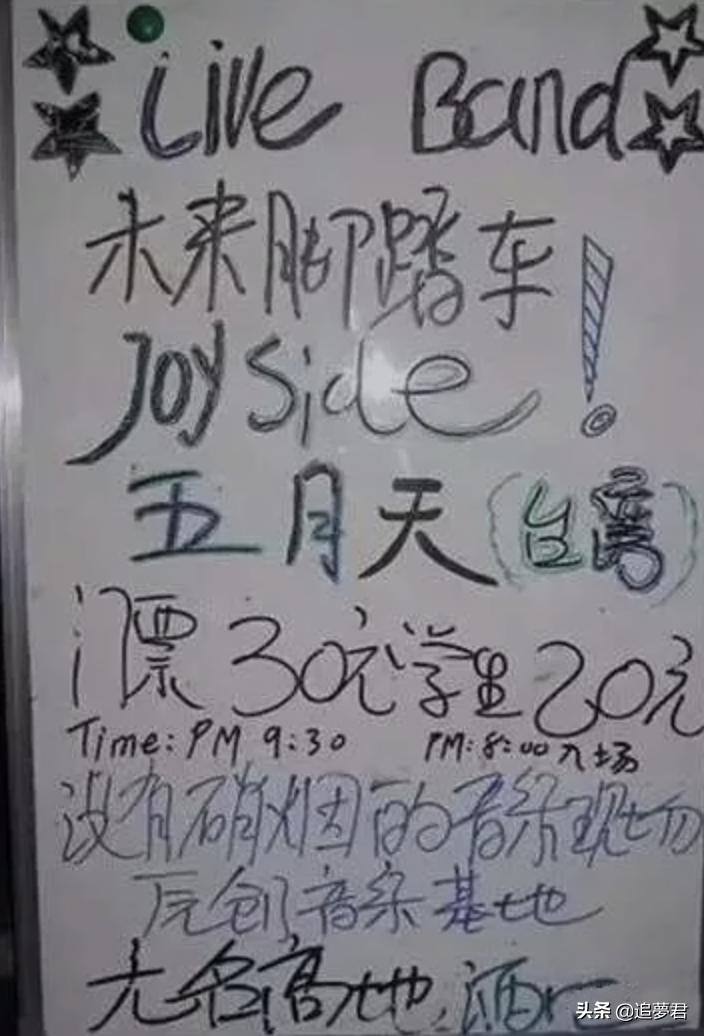 Live Band
未来脚踏车!
Joyside
五月天(台湾)
门票30元学生20元
Time: PM 9:30 PM: 8:00入场
没有硝烟的音乐现场
原创音乐基地
无名高地.酒
头条 @追夢君